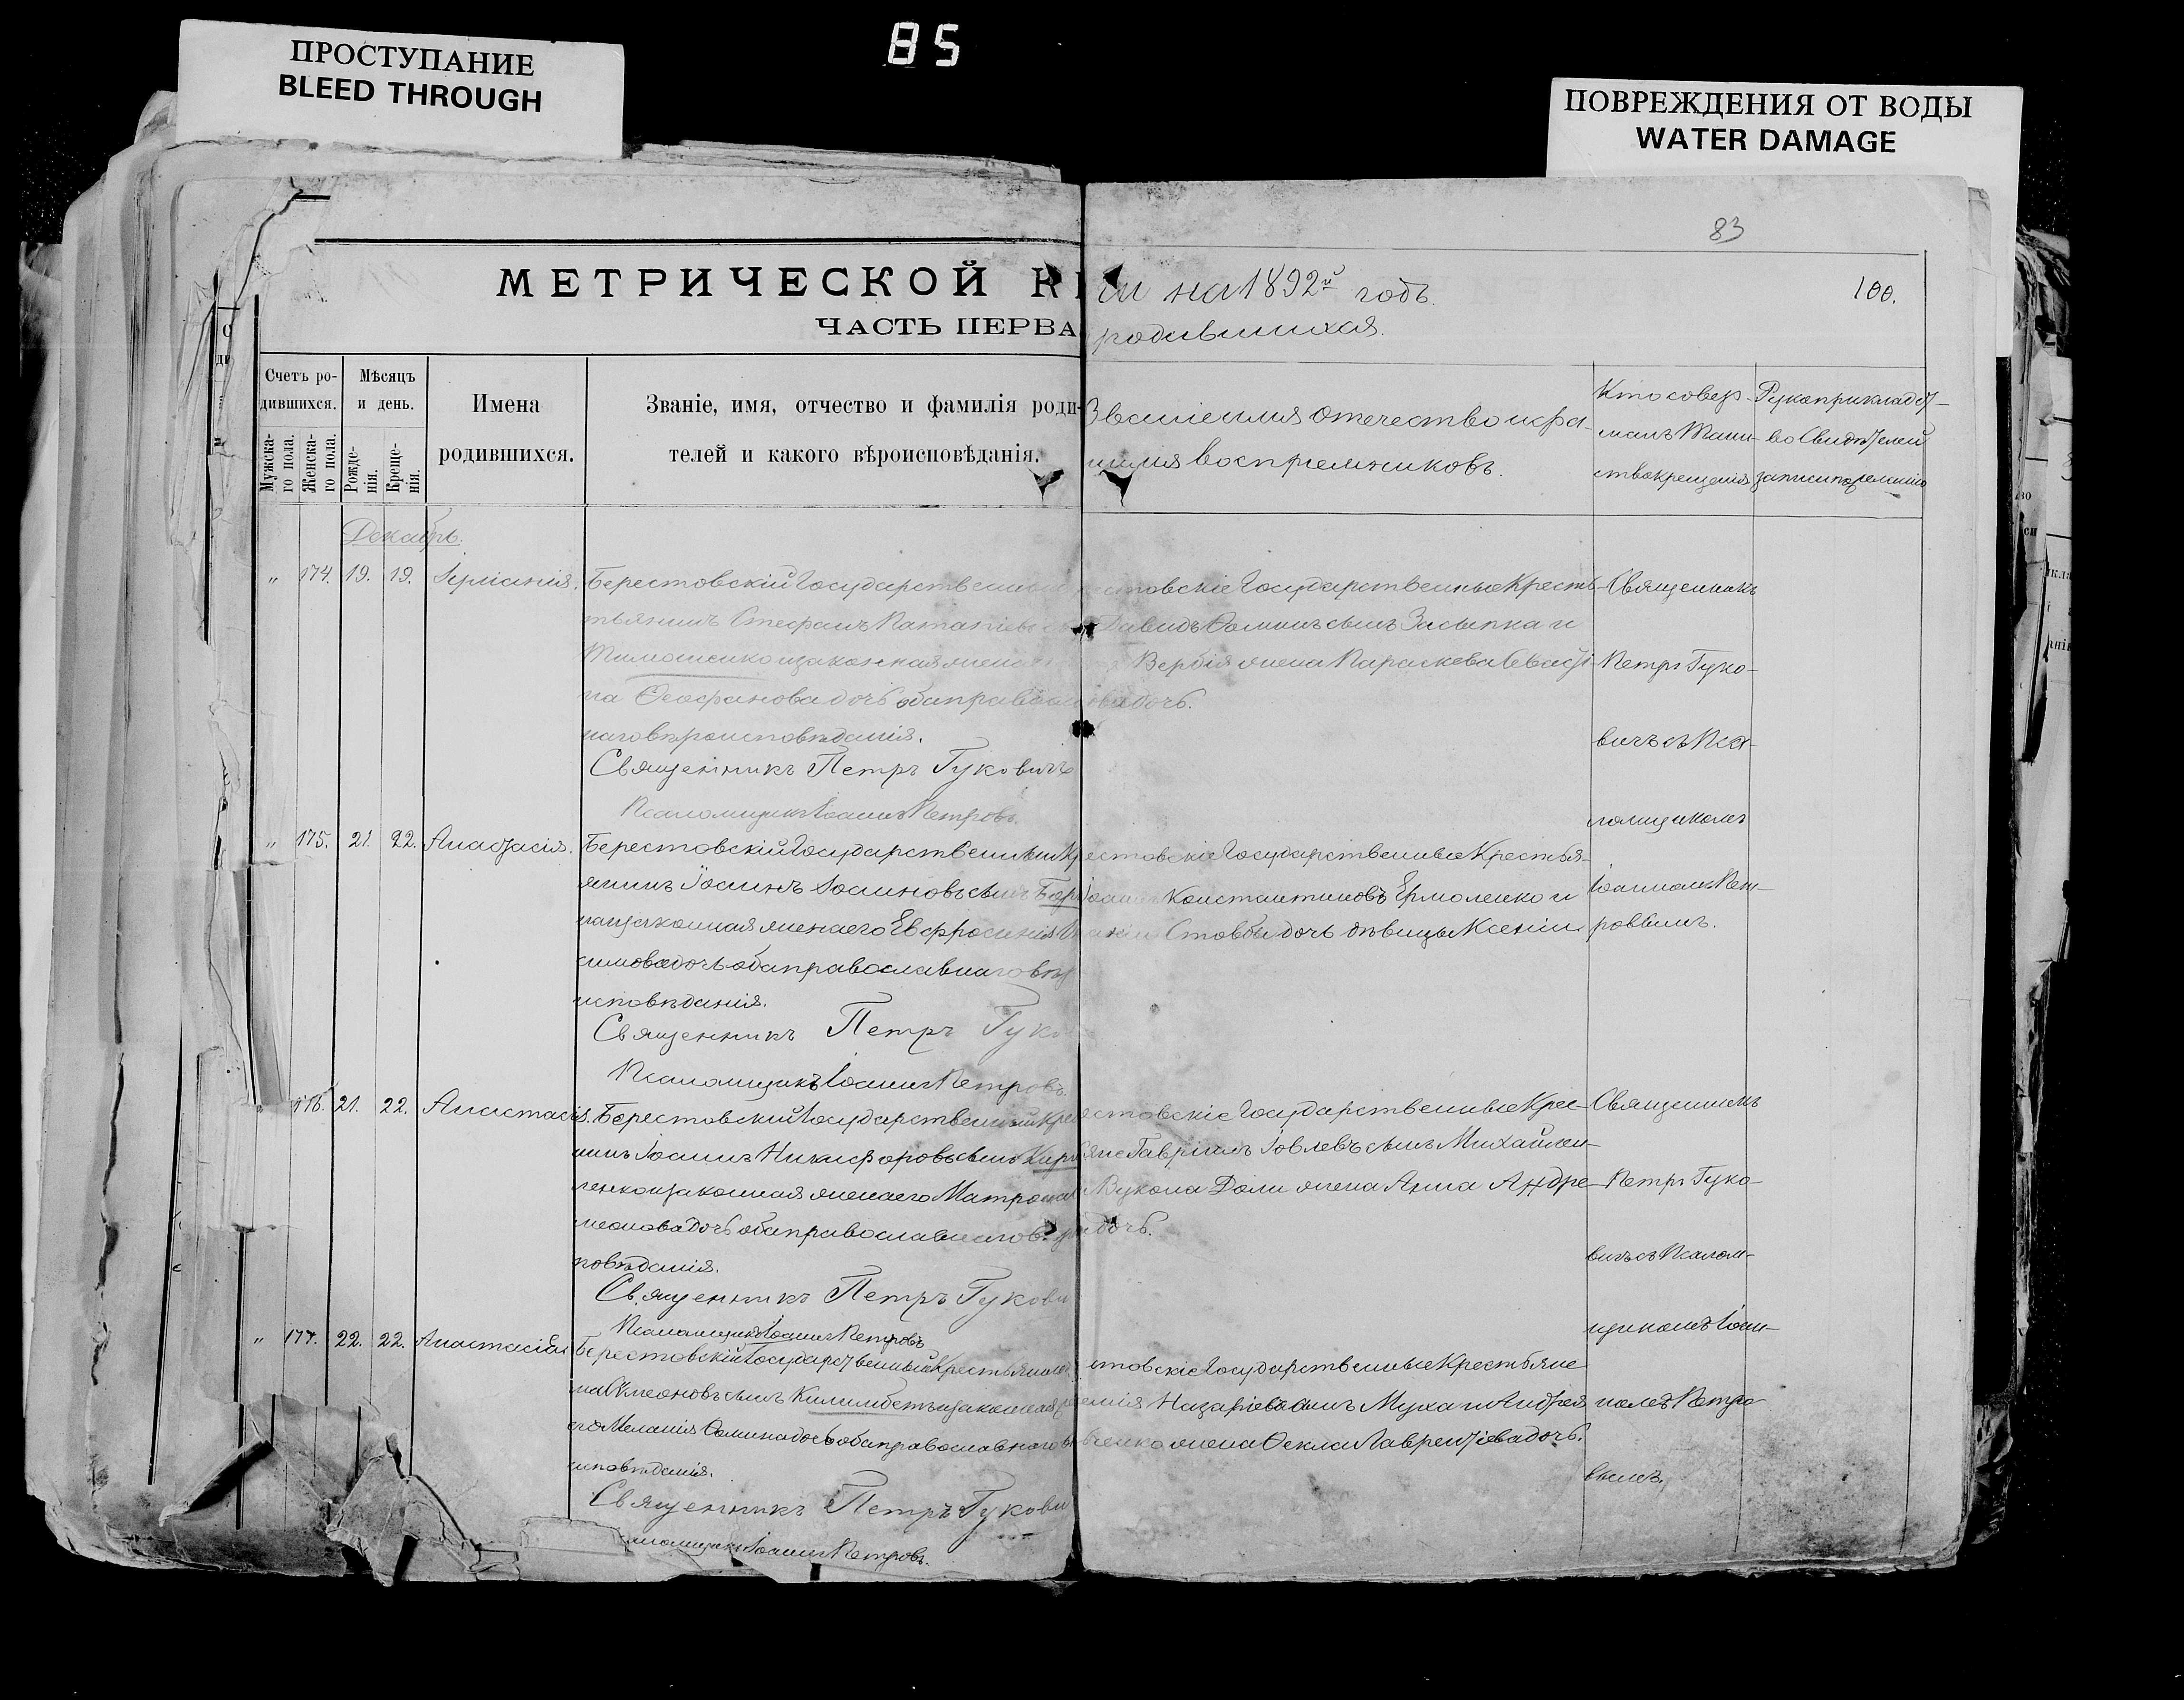 85
ПРОСТУПАНИЕ
BLEED THROUGH
ПОВРЕЖДЕНИЯ ОТ ВОДЫ
WATER DAMAGE
83
МЕТРИЧЕСКОЙ К
ги на 1892й годъ.
100.
ЧАСТЬ ПЕРВА
родившихся.
Счетъ ро-
дившихся.
Мужска-
го пола.
Женска-
го пола.
Мѣсяцъ
и день.
Рожде-
нія.
Креще-
нія.
Имена
родившихся.
Званіе, имя, отчество и фамилія роди-
телей и какого вѣроисповѣданія.
Званіе имя отечество и фа-
милія воспріемниковъ.
Кто совер-
шалъ Таин-
ство крещенія
Рукоприкладст-
во Свидѣтелей
записи по желанію
Декабрь.
„ 174. 19. 19. Іуліанія.
Берестовскій Государственный
тьянинъ Стефанъ Потапіевъ
Тимошенко и законная жена
на Ѳеофанова дочь оба православ
наго вѣроисповѣданія.
Священникъ Петръ Гуковичъ
Псаломщикъ Іоаннъ Петровъ.
стовскіе Государственные Кресть-
Давидъ Ѳоминъ сынъ Засыпка и
Вербія жена Параскева Севасті-
ова дочь.
Священникъ
Петръ Гуко-
вичъ съ Пса-
ломщикомъ
Іоанномъ Пет-
ровымъ.
„ 175. 21. 22. Анастасія.
Берестовскій Государственный Кр
янинъ Іоаннъ Іоанновъ сынъ
на и законная жена его Евфросинія
симова дочь оба православнаго вѣр
исповѣданія.
Священникъ Петръ Гуко
Псаломщикъ Іоаннъ Петровъ.
естовскіе Государственные Крестья-
Іоаннъ Константиновъ Ермоленко и
Стовбы дочь дѣвица Ксенія
176. 21. 22. Анастасія.
Берестовскій Государственный Кре
нинъ Іоаннъ Никифоровъ сынъ
ленко и законная жена его Матрона
меонова дочь оба православнаго вѣр
повѣданія.
Священникъ Петръ Гукови
Псаломщикъ Іоаннъ Петровъ
естовскіе Государственные Крес-
яне Гавріилъ Іовлевъ сынъ Михайлен-
Вукона Доли жена Анна Андре-
дочь.
Священникъ
Петръ Гуко-
вичъ съ Псалом-
щикомъ Іоан-
номъ Петро-
вымъ.
„ 177. 22. 22. Анастасія
Берестовскій Государственный Крестьянинъ
Сѵмеоновъ сынъ Килимбетъ и законная
его Меланія Ѳомина дочь оба православнаго
исповѣданія.
Священникъ Петръ Гукови
Псаломщикъ Іоаннъ Петровъ.
стовскіе Государственные Крестьяне
Назаріевъ сынъ Муха и Андрея
ченко жена Ѳекла Лаврентіева дочь.